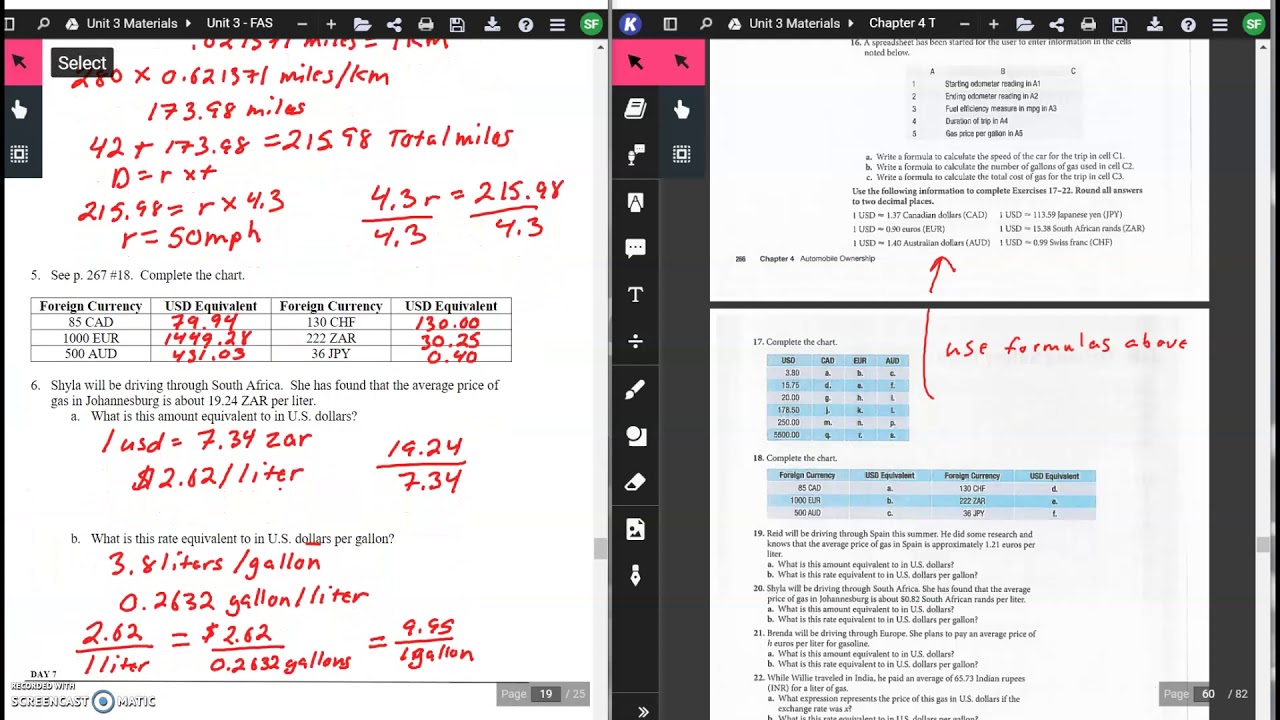 Unit 3 Materials
Unit 3 - FAS
SF
Select
.621371 miles = 1 km
280 x 0.621371 miles/km
173.98 miles
42 + 173.98 = 215.98 Total miles
D = r x t
215.98 = r x 4.3
r = 50mph
4.3 r = 215.98
4.3 4.3
5. See p. 267 #18. Complete the chart.
Foreign Currency USD Equivalent Foreign Currency USD Equivalent
85 CAD 79.94 130 CHF 130.00
1000 EUR 1449.28 222 ZAR 30.25
500 AUD 431.03 36 JPY 0.40
6. Shyla will be driving through South Africa. She has found that the average price of
gas in Johannesburg is about 19.24 ZAR per liter.
a. What is this amount equivalent to in U.S. dollars?
1 usd = 7.34 zar
$2.62/liter
19.24
7.34
b. What is this rate equivalent to in U.S. dollars per gallon?
3.8 liters /gallon
0.2632 gallon/liter
2.62 = $2.62 = 9.95
1 liter 0.2632 gallons 1 gallon
DAY 7
RECORDED WITH
SCREENCAST MATIC
Page 19 / 25
K
Unit 3 Materials
Chapter 4 T
SF
16. A spreadsheet has been started for the user to enter information in the cells
noted below.
A B C
1 Starting odometer reading in A1
2 Ending odometer reading in A2
3 Fuel efficiency measure in mpg in A3
4 Duration of trip in A4
5 Gas price per gallon in A5
a. Write a formula to calculate the speed of the car for the trip in cell C1.
b. Write a formula to calculate the number of gallons of gas used in cell C2.
c. Write a formula to calculate the total cost of gas for the trip in cell C3.
Use the following information to complete Exercises 17–22. Round all answers
to two decimal places.
1 USD ≈ 1.37 Canadian dollars (CAD) 1 USD ≈ 113.59 Japanese yen (JPY)
1 USD ≈ 0.90 euros (EUR) 1 USD ≈ 15.38 South African rands (ZAR)
1 USD ≈ 1.40 Australian dollars (AUD) 1 USD ≈ 0.99 Swiss franc (CHF)
266 Chapter 4 Automobile Ownership
use formulas above
17. Complete the chart.
USD CAD EUR AUD
3.80 a. b. c.
15.75 d. e. f.
20.00 g. h. i.
178.50 j. k. l.
250.00 m. n. p.
5500.00 q. r. s.
18. Complete the chart.
Foreign Currency USD Equivalent Foreign Currency USD Equivalent
85 CAD a. 130 CHF d.
1000 EUR b. 222 ZAR e.
500 AUD c. 36 JPY f.
19. Reid will be driving through Spain this summer. He did some research and
knows that the average price of gas in Spain is approximately 1.21 euros per
liter.
a. What is this amount equivalent to in U.S. dollars?
b. What is this rate equivalent to in U.S. dollars per gallon?
20. Shyla will be driving through South Africa. She has found that the average
price of gas in Johannesburg is about $0.82 South African rands per liter.
a. What is this amount equivalent to in U.S. dollars?
b. What is this rate equivalent to in U.S. dollars per gallon?
21. Brenda will be driving through Europe. She plans to pay an average price of
h euros per liter for gasoline.
a. What is this amount equivalent to in U.S. dollars?
b. What is this rate equivalent to in U.S. dollars per gallon?
22. While Willie traveled in India, he paid an average of 65.73 Indian rupees
(INR) for a liter of gas.
a. What expression represents the price of this gas in U.S. dollars if the
exchange rate was x?
b. What is this rate equivalent to in U.S. dollars per gallon?
Page 60 / 82